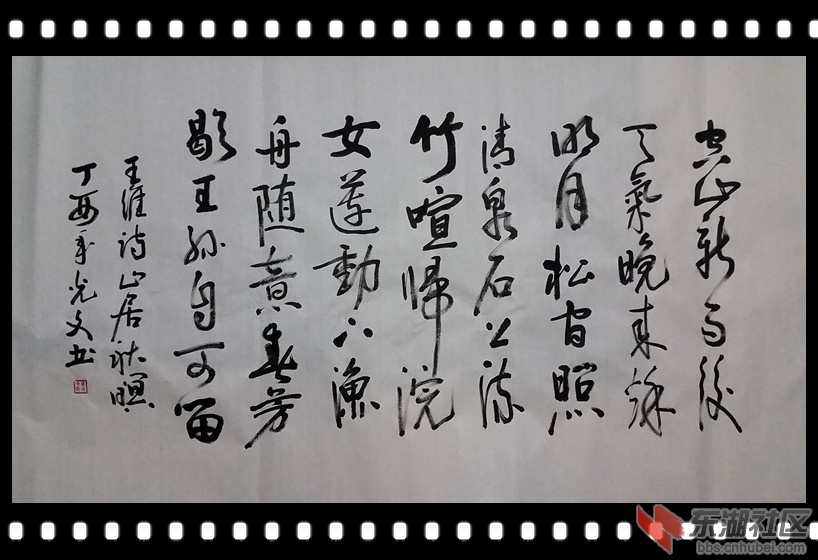 空山新雨後
天氣晚來秋
明月松间照
清泉石上流
竹喧帰浣
女莲動下漁
舟随意春芳
歇王孙自可留
王维诗山居秋暝
丁酉年光文书
东湖社区
bbs.cnhubei.com